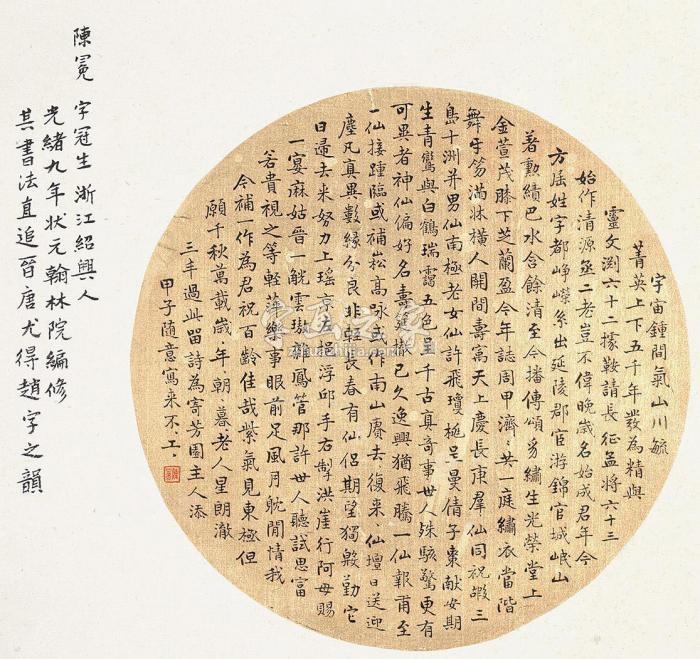 宇宙鍾間氣山川毓
菁英上下五千年發為精與
靈文淵六十二據鞍請長征孟將六十三
始作清源丞二老豈不偉晚歲名始成君年今
方屆姓字都崢嶸系出延陵郡官游錦官城岷山
著勳績巴水含餘清至今播傳頌豸繡生光榮堂上
金萱茂膝下芝蘭盈今年誌周甲濟々共一庭繡衣當階
舞牙笏滿牀橫人開間壽寓天上慶長庚羣仙同祝嘏三
島十洲并男仙南極老女仙許飛瓊足曼倩子棗献安期
生青鸞與白鶴瑞靄五色呈千古真奇事世人殊駭驚更有
可異者神仙偏好名壽筵撤已久逸興猶飛騰一仙報甫至
一仙接踵臨或補崧高咏或作南山賡去復来仙壇日送迎
塵凡真異數緣分良非輕長春有仙侶期望獨殷勤它
日歸去来努力上瑤京左挹浮邱手右掣洪崖行阿母賜
一宴麻姑晉一觥雲璈雜鳳管那許世人聽試思富
若貴視之等輕萍樂事眼前足風月耽閒情我
今補一作為君祝百齡佳哉紫氣見東極但
願千秋萬載歲々年朝々暮老人星朗澈
三丰過此留詩為寄芳園主人添
甲子随意寫来不々工々
陳冕 字冠生 浙江紹興人
光緒九年狀元翰林院編修
其書法直追晉唐尤得趙字之韻